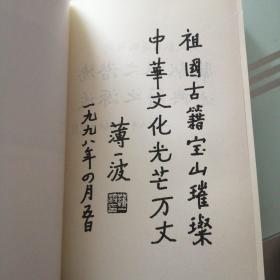 祖國古籍宝山璀璨
中華文化光芒万丈
薄一波
一九九八年四月五日